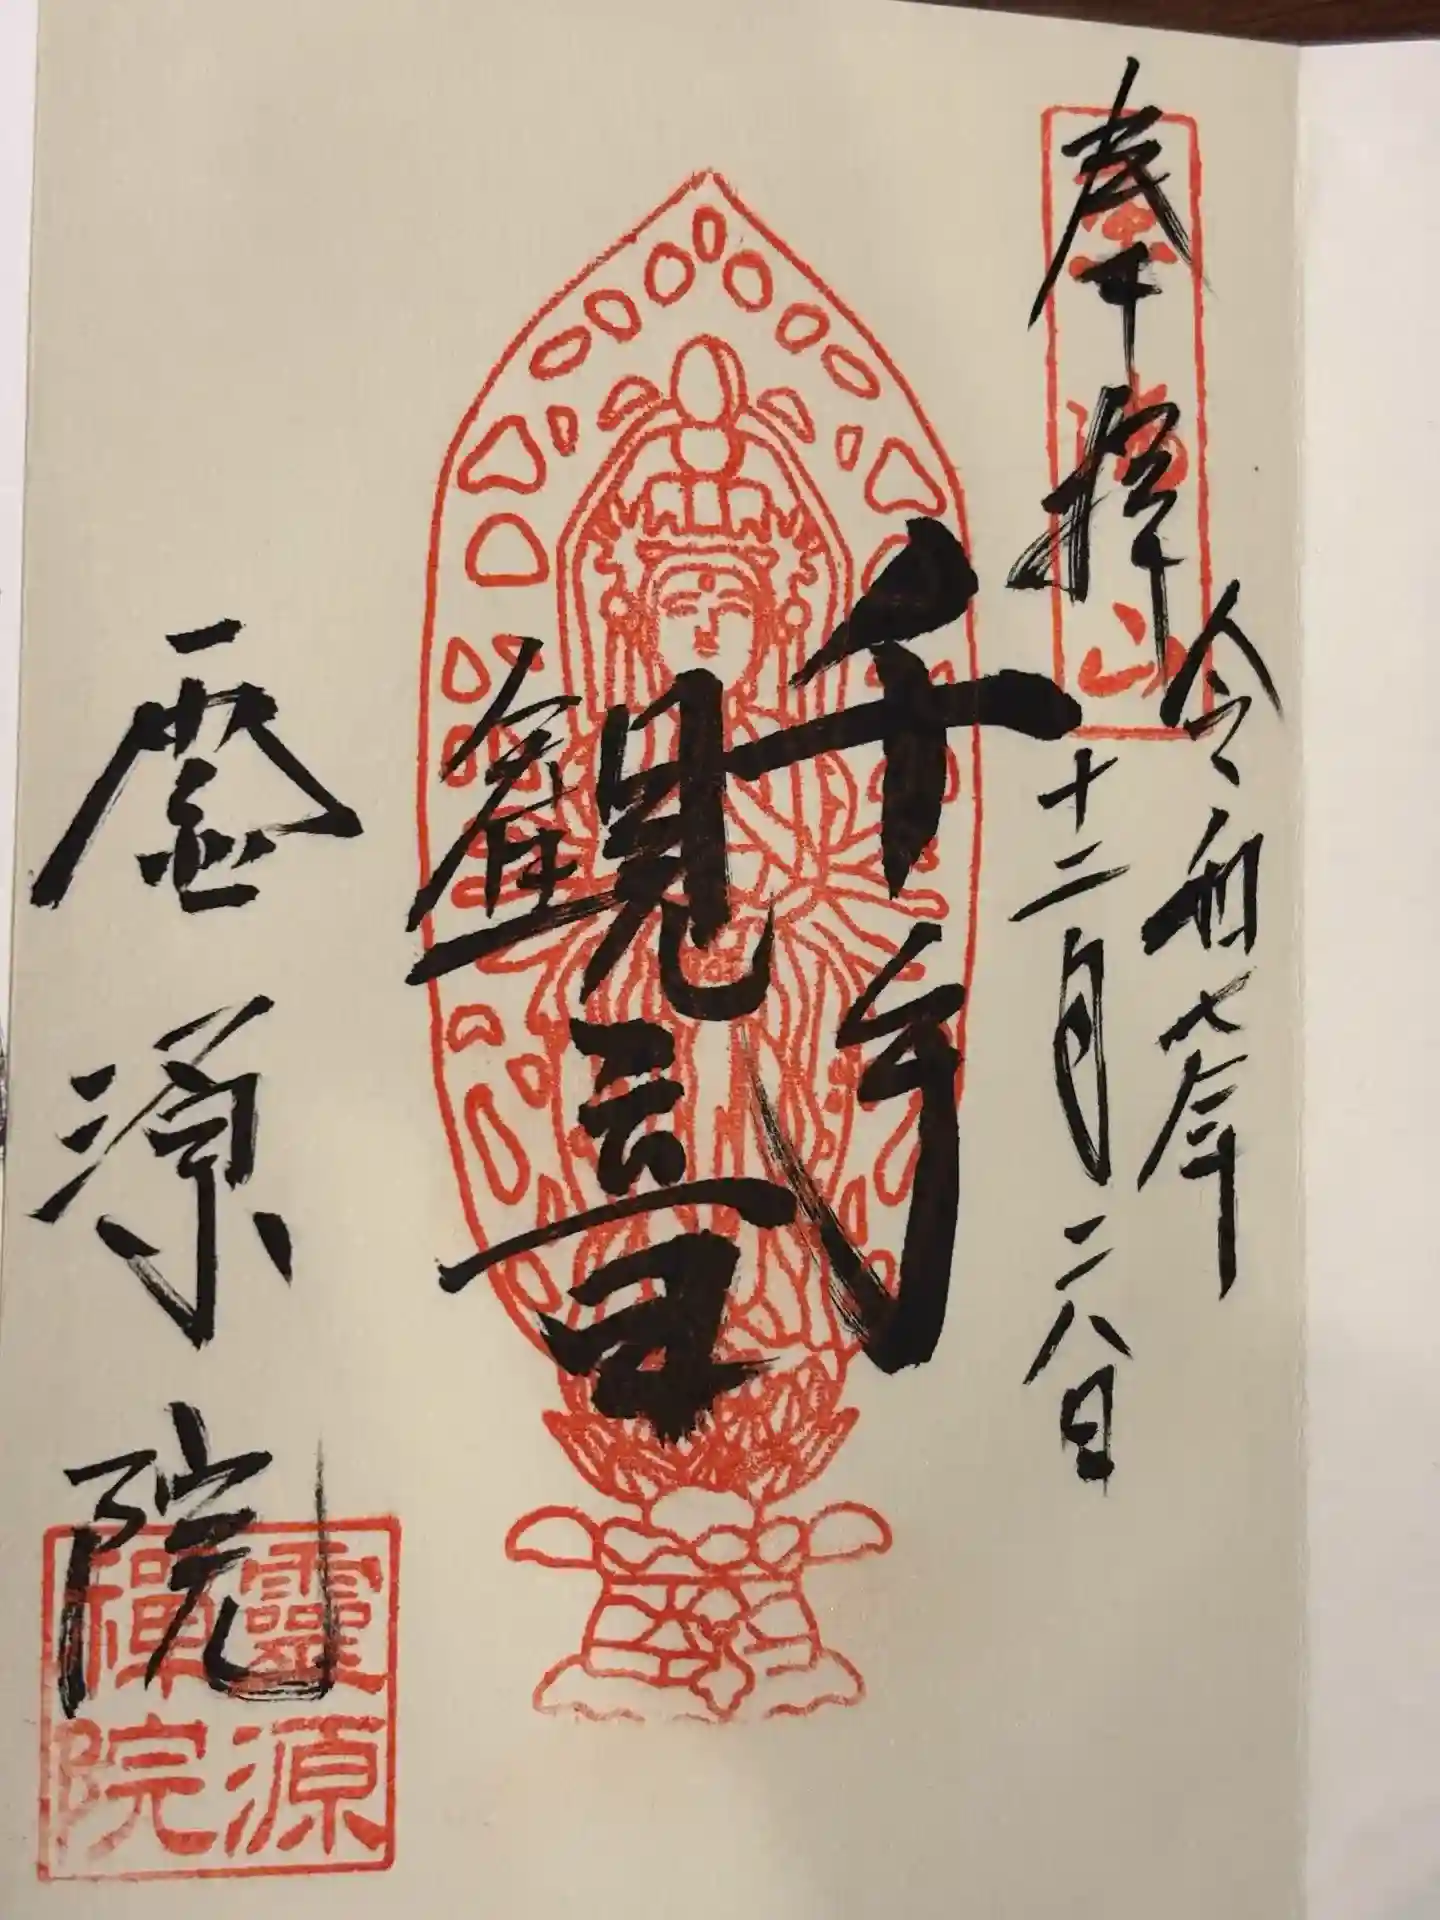 奉拝
令和七年
十二月二八日
千手
観音
霊源院
靈源
禅院